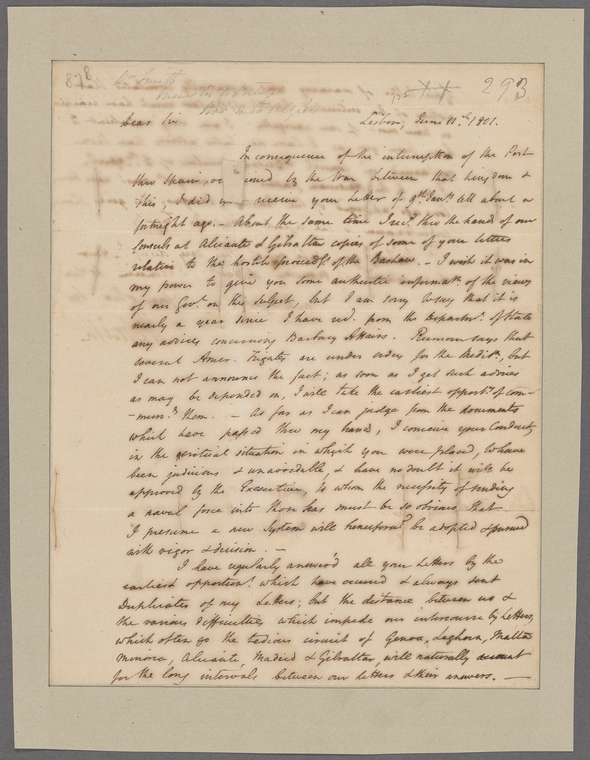 878
Wm Smith
293
Dear Sir Lisbon, June 11.th 1801.
In consequence of the interruption of the Post
thro Spain, oc ioned by the War between that kingdom &
this, I did receive your Letter of 9th Jany till about a
fortnight ago. – About the same time I recd thro the hands of our
Consuls at Alicante & Gibraltar copies of some of your letters
relative to the hostile proceedgs of the Bashaw. – I wish it was in
my power to give you some authentic informatn of the views
of our Govt on this subject, but I am sorry to say that it is
nearly a year since I have recd from the Departmt of State
any advices concerning Barbary Affairs. Rumour says that
several Amer. Frigates are under orders for the Meditn, but
I can not announce the fact; as soon as I get such advices
as may be depended on, I will take the earliest opporty of com-
-mung them. – As far as I can judge from the documents
which have passed thro my hands, I conceive your Conduct,
in the critical situation in which you were placed, to have
been judicious & unavoidable, & have no doubt it will be
approved by the Executive, to whom the necessity of sending
a naval force into those Seas must be so obvious that
I presume a new System will henceforwd be adopted & pursued
with vigor & decision. –
I have regularly answer'd all your Letters by the
earliest opportunt which have occured & always sent
Duplicates of my Letters; but the distance between us &
the various difficulties which impede our intercourse by Letters,
which often go the tedious circuit of Genoa, Leghorn, Malta
Minorca, Alicante, Madrid & Gibraltar, will naturally account
for the long intervals between our letters & their answers. —